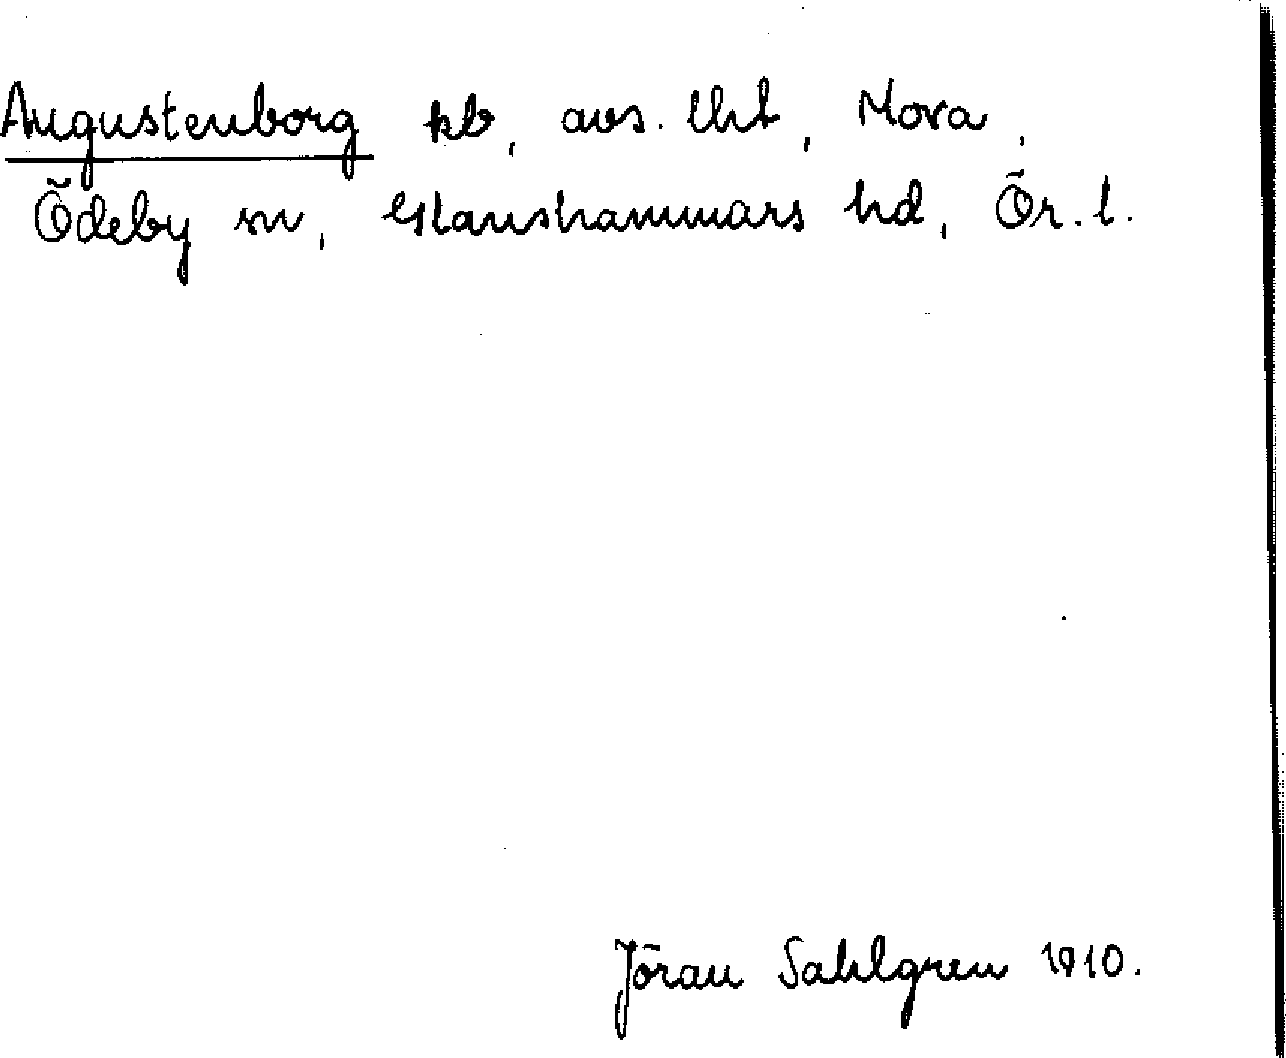 Augustenborg pb, avs. lht, Mora,
Ödeby sn, Glanshammars hd, Ör. l.
Jöran Sahlgren 1910.